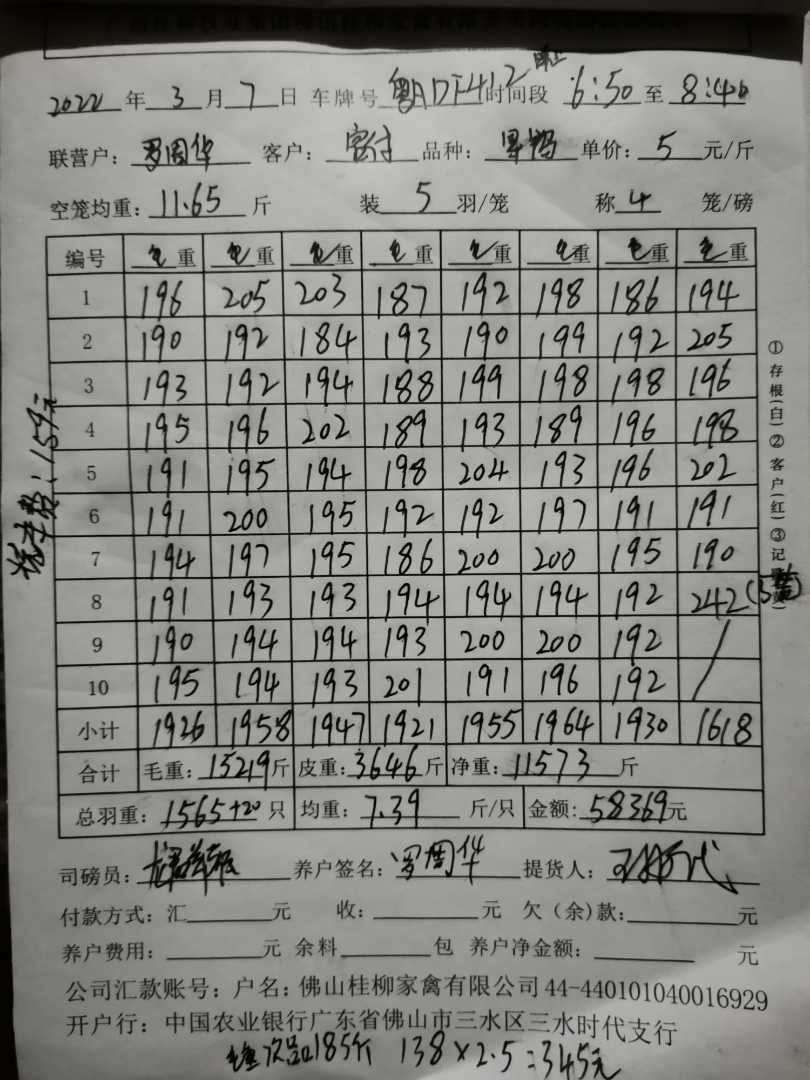 2022 年 3 月 7 日 车牌号 粤ADF412 时间段 6:50 至 8:40
联营户: 罗周华 客户: 品种: 单价: 5 元/斤
空笼均重: 11.65 斤 装 5 羽/笼 称 4 笼/磅
编号 毛重 毛重 毛重 毛重 毛重 毛重 毛重 毛重
1 196 205 203 187 192 198 186 194
2 190 192 184 193 190 199 192 205
3 193 192 194 188 199 198 198 196
4 195 196 202 189 193 189 196 198
5 191 195 194 198 204 193 196 202
6 191 200 195 192 192 197 191 191
7 194 197 195 186 200 200 195 190
8 191 193 193 194 194 194 192 242 (5笼)
9 190 194 194 193 200 200 192 /
10 195 194 193 201 191 196 192 /
小计 1926 1958 1947 1921 1955 1964 1930 1618
合计 毛重: 15219 斤 皮重: 3646 斤 净重: 11573 斤
总羽重: 1565+20 只 均重: 7.39 斤/只 金额: 58369 元
司磅员: 养户签名: 罗周华 提货人:
付款方式: 汇 元 收: 元 欠(余)款: 元
养户费用: 元 余料 包 养户净金额: 元
公司汇款账号: 户名: 佛山桂柳家禽有限公司 44-440101040016929
开户行: 中国农业银行广东省佛山市三水区三水时代支行
次品185斤 138×2.5=345元
费:159元
①存根(白)②客户(红)③记